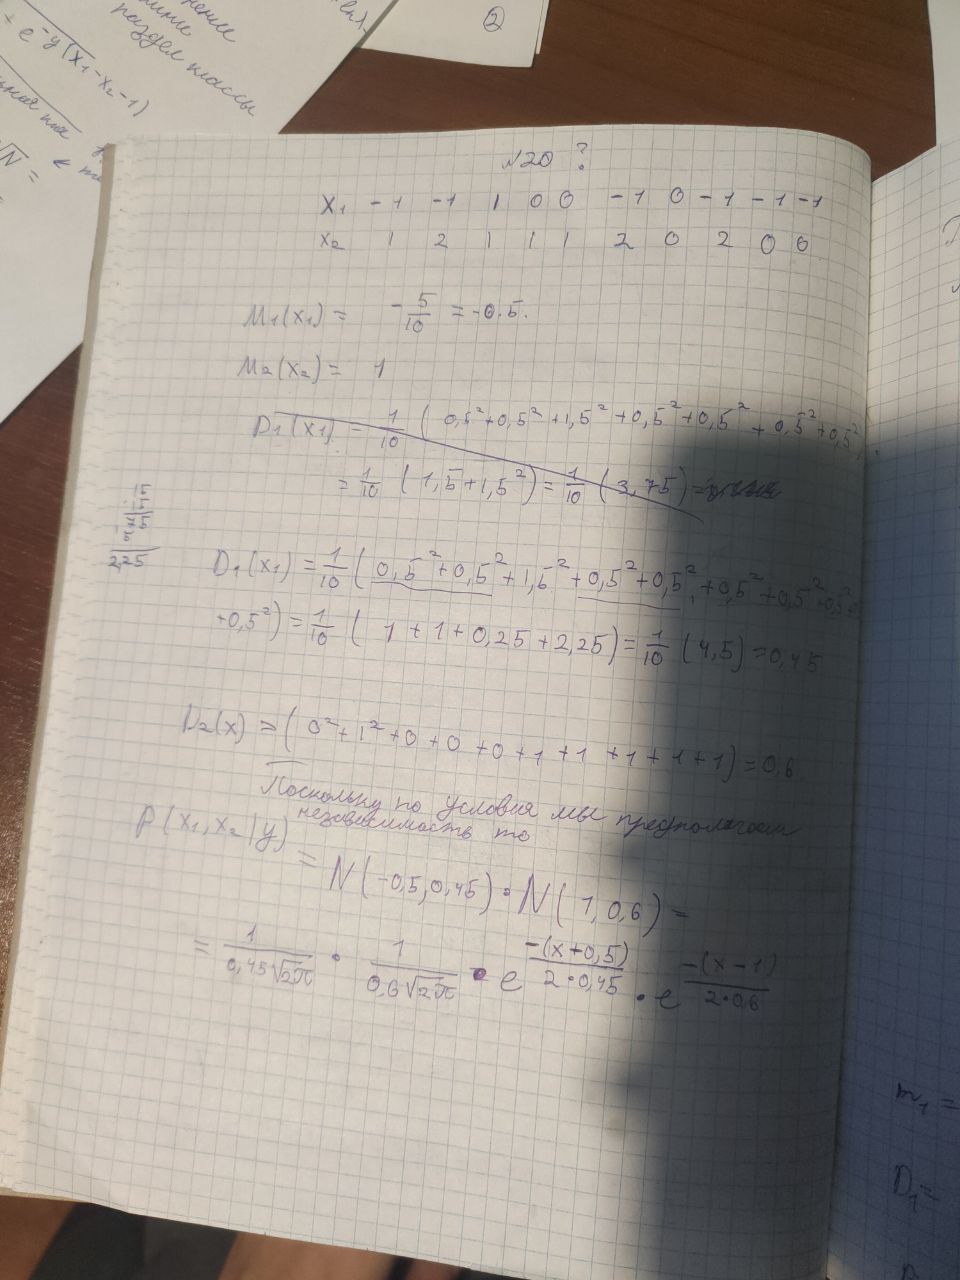 ②
раздел классы
+ e^-y(x₁-x₂-1)
√N =
N20 ?
X₁ -1 -1 1 0 0 -1 0 -1 -1 -1
x₂ 1 2 1 1 1 2 0 2 0 0
M₁(x₁) = -5/10 = -0.5.
M₂(x₂) = 1
D₁(x₁) = 1/10 ( 0,5² + 0,5² + 1,5² + 0,5² + 0,5² + 0,5² + 0,5²
= 1/10 ( 1,5 + 1,5² ) = 1/10 ( 3,75 ) =
2,25
D₁(x₁) = 1/10 ( 0,5² + 0,5² + 1,5² + 0,5² + 0,5² + 0,5² + 0,5² + 0,5² +
+0,5² ) = 1/10 ( 1 + 1 + 0,25 + 2,25 ) = 1/10 ( 4,5 ) = 0,45
D₂(x) = ( 0² + 1² + 0 + 0 + 0 + 1 + 1 + 1 + 1 + 1 ) = 0,6
Поскольку по условия мы предполагаем
независимость то
P ( x₁, x₂ | y ) = N ( -0,5, 0,45 ) · N ( 1, 0,6 ) =
= 1/(0,45√2π) · 1/(0,6√2π) · e^(-(x+0,5)/(2·0,45)) · e^(-(x-1)/(2·0,6))
m₁ =
D₁ =